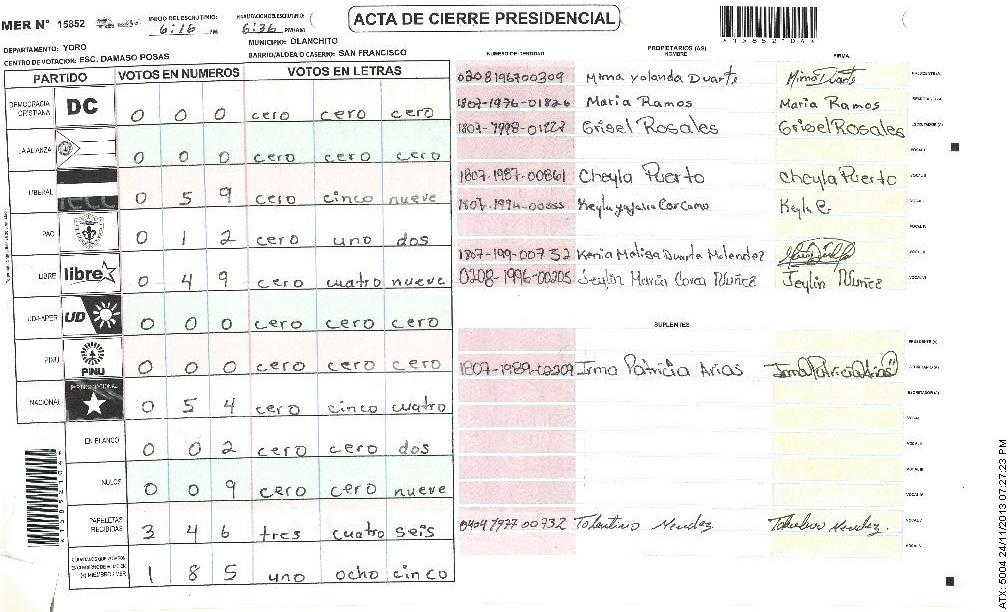 MER N° 15852
INICIO DEL ESCRUTINIO:
6:16 PM
FINALIZACION ESCRUTINIO:
6:36 PM/AM
ACTA DE CIERRE PRESIDENCIAL
DEPARTAMENTO: YORO
MUNICIPIO: OLANCHITO
CENTRO DE VOTACION: ESC. DAMASO POSAS
BARRIO/ALDEA O CASERIO: SAN FRANCISCO
PARTIDO VOTOS EN NUMEROS VOTOS EN LETRAS
DEMOCRACIA CRISTIANA DC 0 0 0 cero cero cero
LA ALIANZA 0 0 0 cero cero cero
LIBERAL 0 5 9 cero cinco nueve
PAC 0 1 2 cero uno dos
LIBRE libre 0 4 9 cero cuatro nueve
UD-FAPER UD 0 0 0 cero cero cero
PINU PINU 0 0 0 cero cero cero
NACIONAL PARTIDO NACIONAL 0 5 4 cero cinco cuatro
EN BLANCO 0 0 2 cero cero dos
NULOS 0 0 9 cero cero nueve
PAPELETAS RECIBIDAS 3 4 6 tres cuatro seis
1 8 5 uno ocho cinco
NUMERO DE IDENTIDAD PROPIETARIOS (AS) NOMBRE FIRMA
0208196700309 Mirna Yolanda Duarte Mirna Duarte PRESIDENTE (A)
1807-1976-01826 Maria Ramos Maria Ramos
Grisel Rosales Grisel Rosales
VOCAL I
1807-1987-00861 Cheyla Puerto Cheyla Puerto VOCAL II
Keyla Carcamo Keyla C
1807-199-00732 Kenia Melisa Duarte Melendez
0208-1996-00205 Jeylin Maria Nuñez Jeylin Nuñez
SUPLENTES
PRESIDENTE (A)
1807-1989-02209 Irma Patricia Arias Irma Patricia Arias SECRETARIO (A)
ESCRUTADOR (A)
VOCAL I
VOCAL II
VOCAL III
VOCAL IV
Tolentino Mendez Tolentino Mendez. VOCAL V
ATX: 5004 24/11/2013 07:27:23 PM